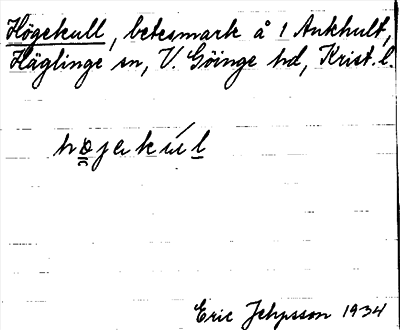 Högekull, betesmark å 1 Ankhult,
Häglinge sn, V. Göinge hd, Krist. l.
Eric Jehpsson 1934